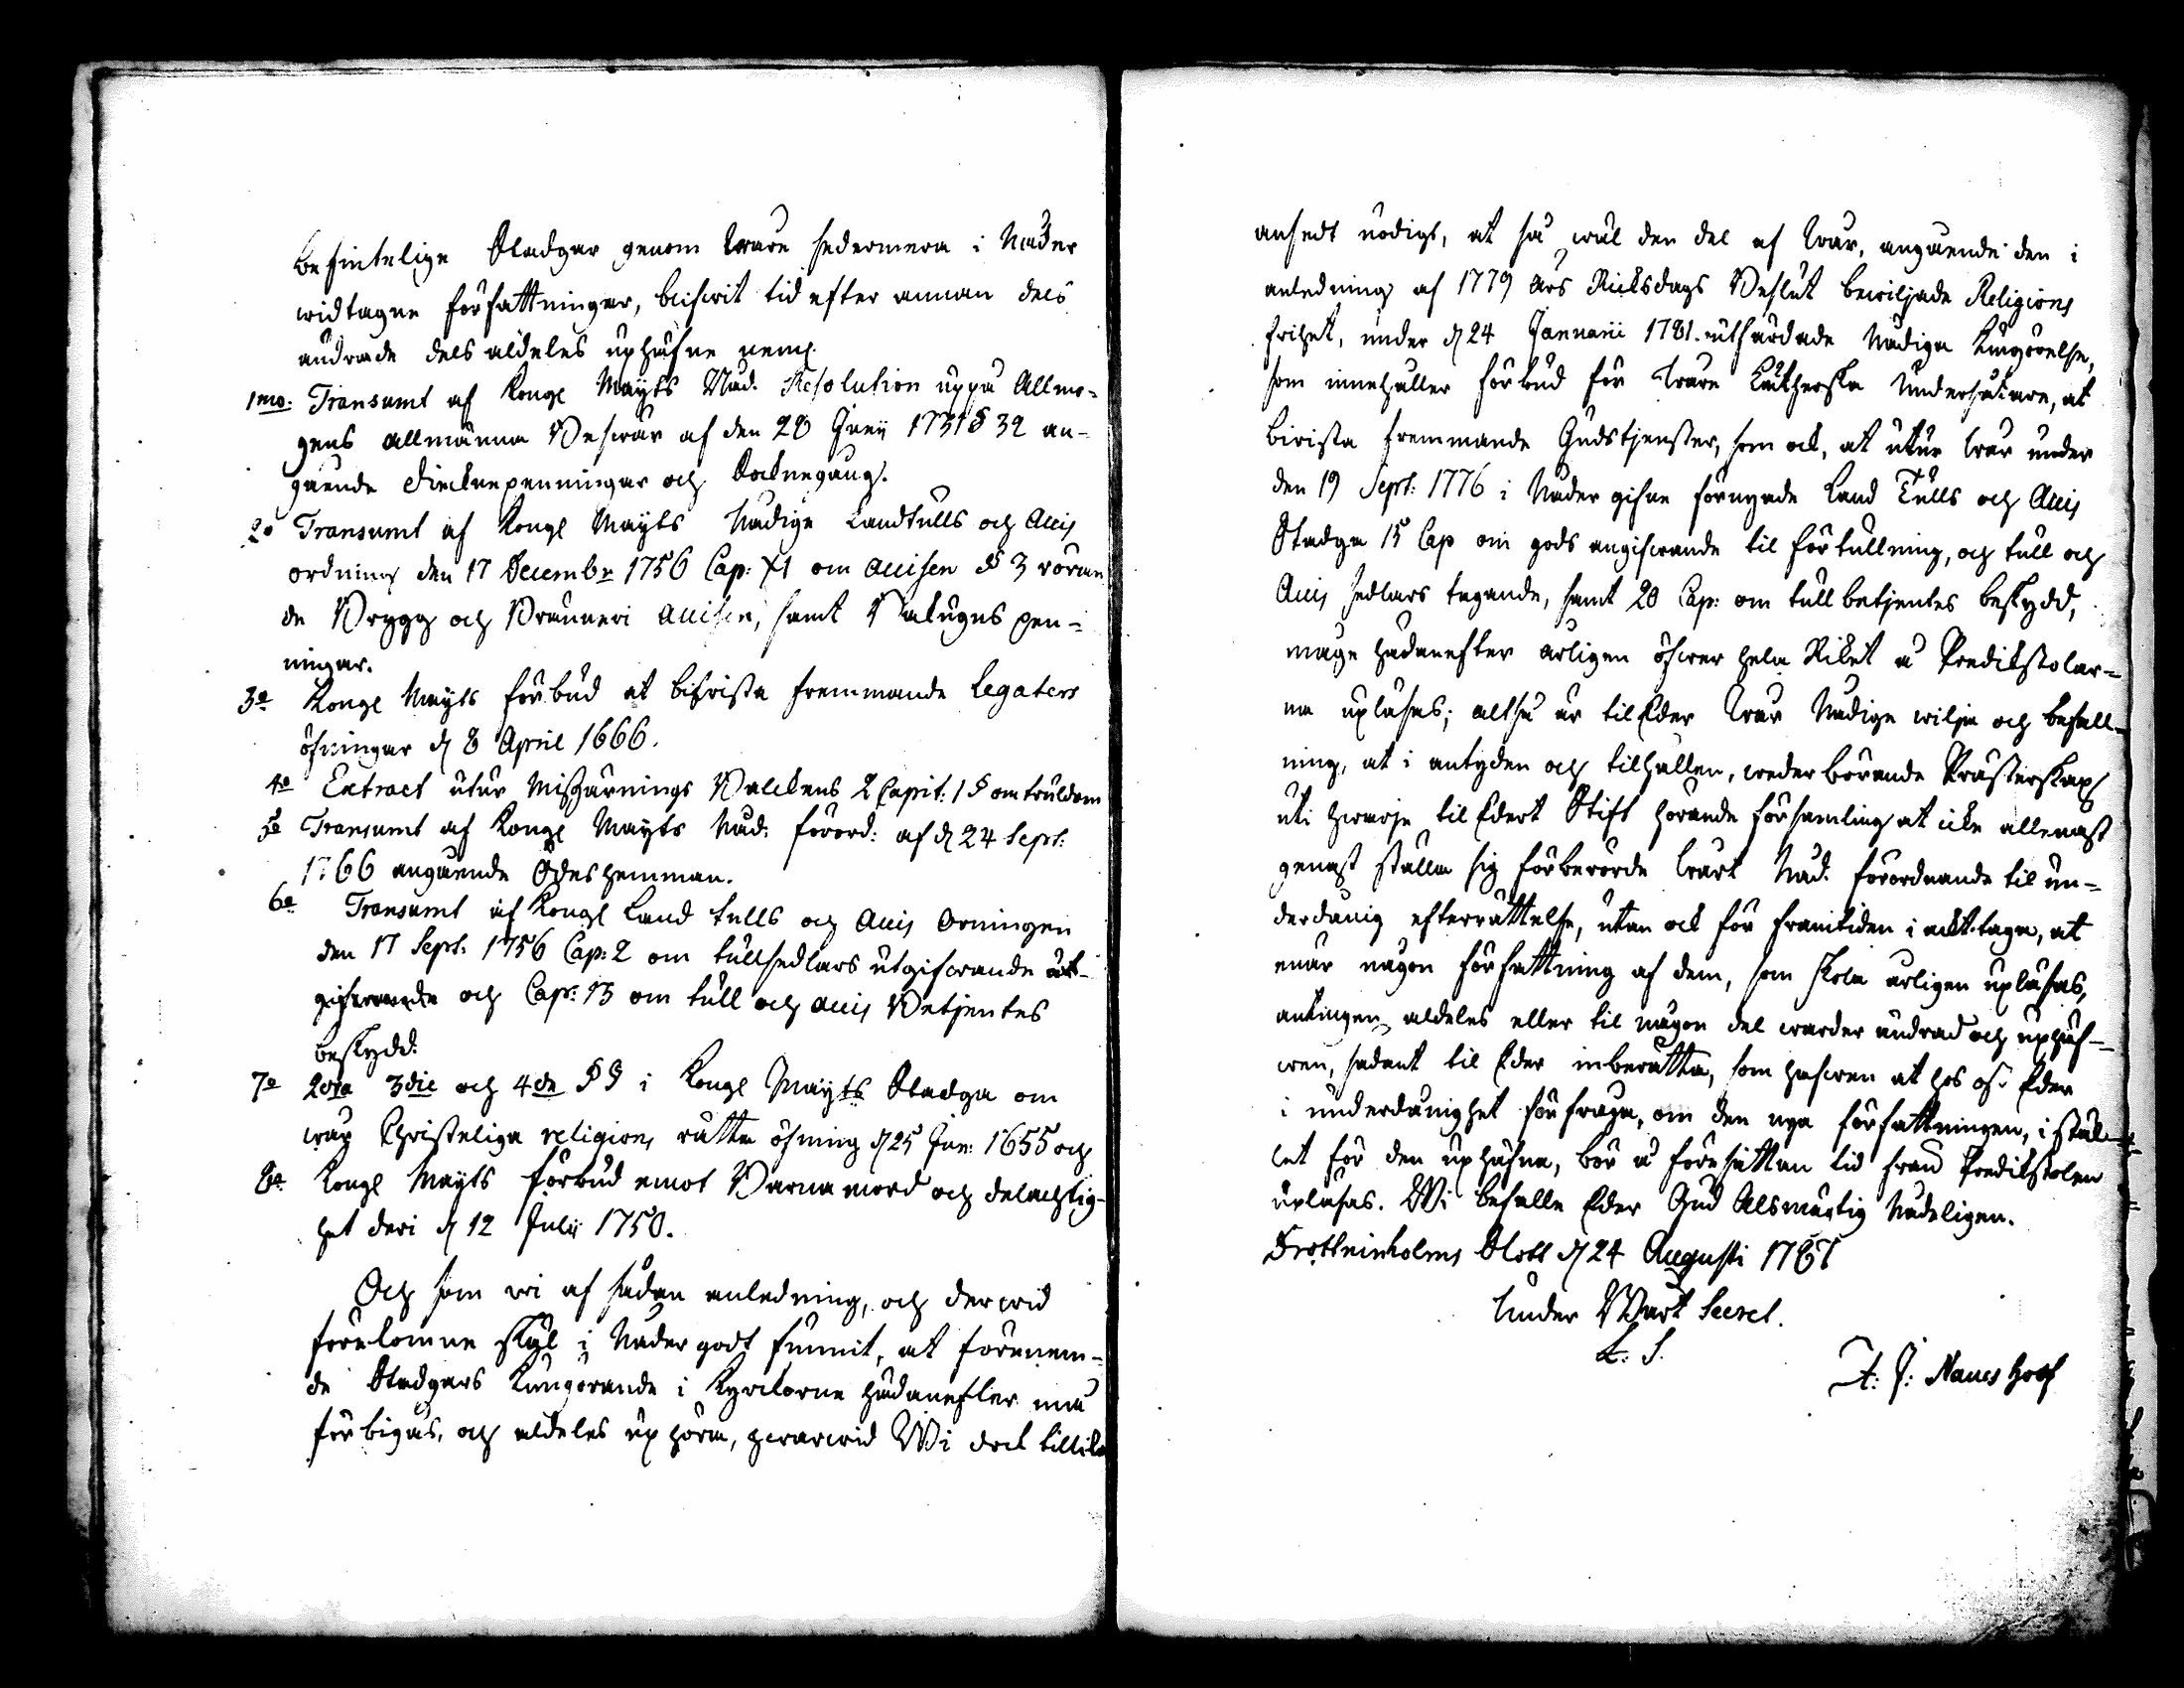 befintelige Stadgar genom Ware sedermera i Nåder
widtagne författningar, blifwit tid efter annan dels
ändrade dels aldeles uphäfne neml.
1mo. Transumt af Kongl Mayts Nåd. Resolution uppå Allmo-
gens allmänna Beswär af den 28 Junii 1731 § 32 an-
gående Dieknepenningar och Socknegång.
2o Transumt af Kongl Mayts Nådige Landtulls och Accis
ordning den 17 Decembr 1756 Cap: XI om accisen § 3 röran
de Brygg och Bränneri accisen, samt Bakugns pen-
ningar.
3o Kongl Mayts förbud at bifwista fremmande Legaters
öfningar d 8 April 1666.
4o Extract utur Missgärnings Balckens 2 Capit: 1 § om truldom
5o Transumt af Kongl Mayts Nåd: förord: af d 24 Sept:
1766 angående Ödeshemman.
6o Transumt af Kongl Land tulls och Accis Orningen
den 17 Sept: 1756 Cap: 2 om tullsedlars utgifwande ut-
gifwande och Cap: 13 om tull och accis Betjentes
beskydd.
7o 2dra 3die och 4de §§ i Kongl Mayts Stadga om
wår Christeliga religions rätta öfning d 25 Jan: 1655 och
8o Kongl Mayts förbud emot Barnamord och delachtig-
het deri d 12 Julii 1750.
Och som wi af sådan anledning, och derwid
förekomne skäl i Nåder godt funnit, at förenem-
de Stadgars Kungörande i Kyrckorne hädanefter må
förbigås, och aldeles uphöra, hwarwid Wi dock tillika
ansedt nödigt, at så wäl den del af Wår, angående den i
anledning af 1779 års Riksdags Beslut bewiljade Religions
frihet, under d 24 Januarii 1781. utfärdade Nådiga Kungörelse,
som innehåller förbud för Ware Lutherska Undersåtare, at
biwista fremmande Gudstjenster, som ock, at utur Wår under
den 19 Sept: 1776 i Nåder gifne förnyade Land Tulls och Accis
Stadga 15 Cap om gods angifwande til förtullning, och tull och
Accis sedlars tagande, samt 20 Cap: om tull betjentes beskydd,
måge hädanefter årligen öfwer hela Riket å Predikstolar-
na upläsas; altså är til Eder Wår Nådige wilja och befall-
ning, at i antyden och tilhållen, wederbörande Prästerskap
uti hwarje til Edert Stift hörande församling at icke allenast
genast ställa sig förberörde Wårt Nåd. förordnande til un-
derdånig efterrättelse, utan ock för framtiden i ackt taga, at
enär någon författning af dem, som skola årligen upläsas,
antingen aldeles eller til någon del warder ändrad och uphäf-
wen, sådant til Eder inberätta, som hafwen at hos oss Eder
i underdånighet förfråga, om den nya författningen, i stäl-
let för den uphäfna, bör å föresattan tid från Predikstolen
upläsas. Wi befalle Eder Gud Alsmägtig Nådeligen.
Drottninholms Slott d 24 Augusti 1787
Under Wårt Secret.
L. S.